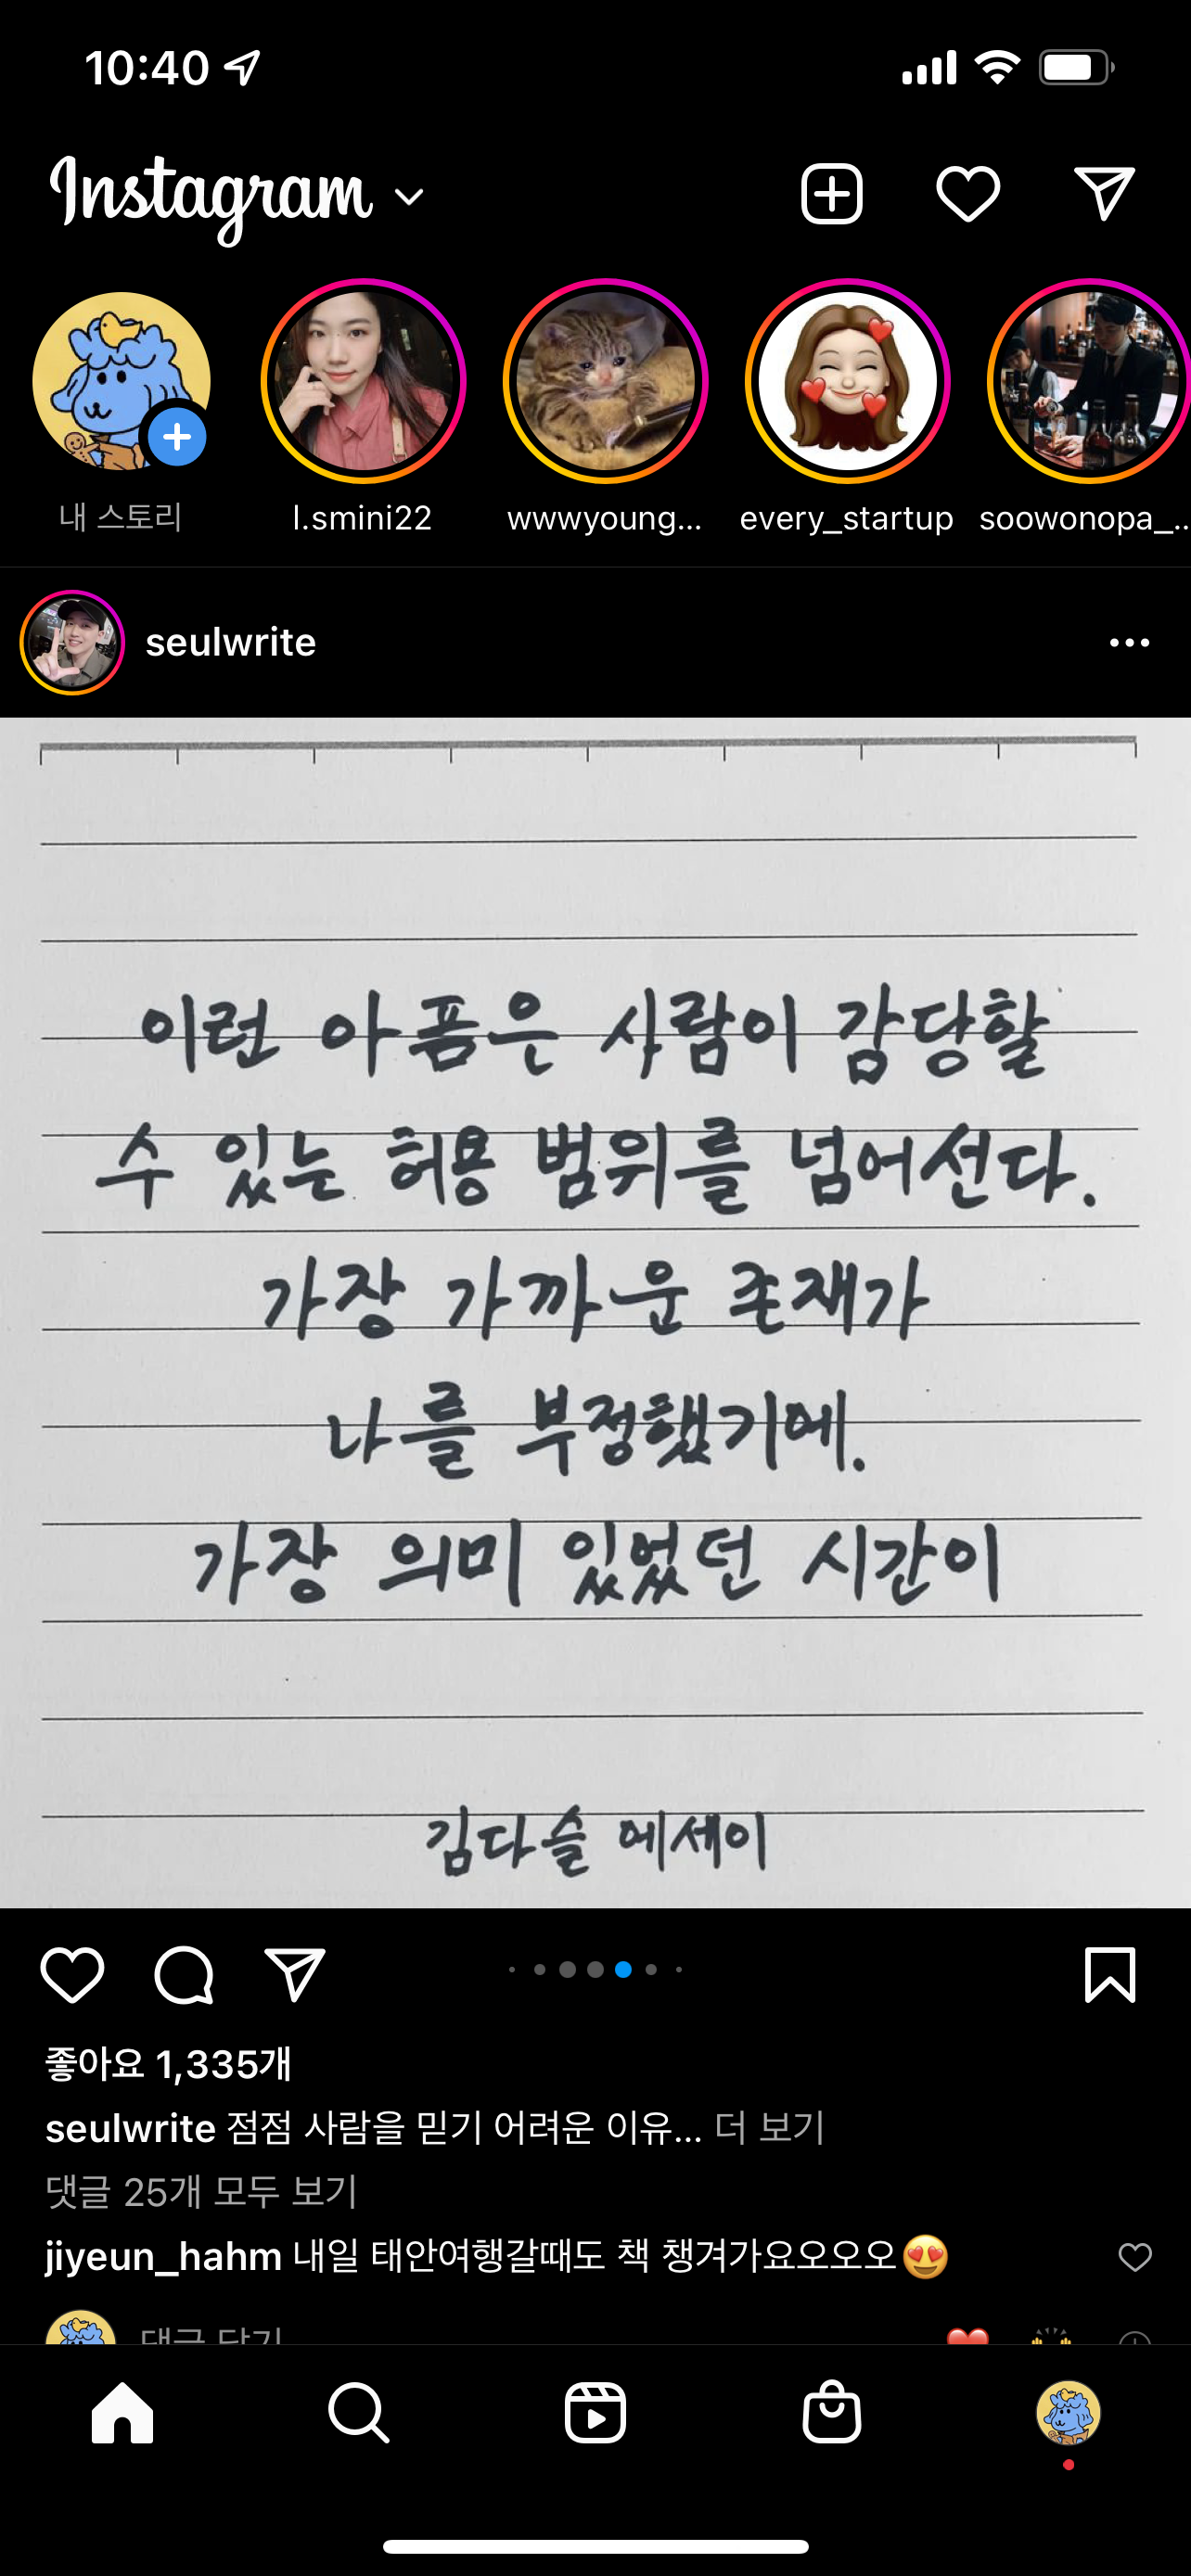 10:40
Instagram
내 스토리
l.smini22
wwwyoung...
every_startup
soowonopa_...
seulwrite
이런 아픔은 사람이 감당할
수 있는 허용 범위를 넘어선다.
가장 가까운 존재가
나를 부정했기에.
가장 의미 있었던 시간이
김다슬 에세이
좋아요 1,335개
seulwrite 점점 사람을 믿기 어려운 이유... 더 보기
댓글 25개 모두 보기
jiyeun_hahm 내일 태안여행갈때도 책 챙겨가요오오오😍
댓글 달기